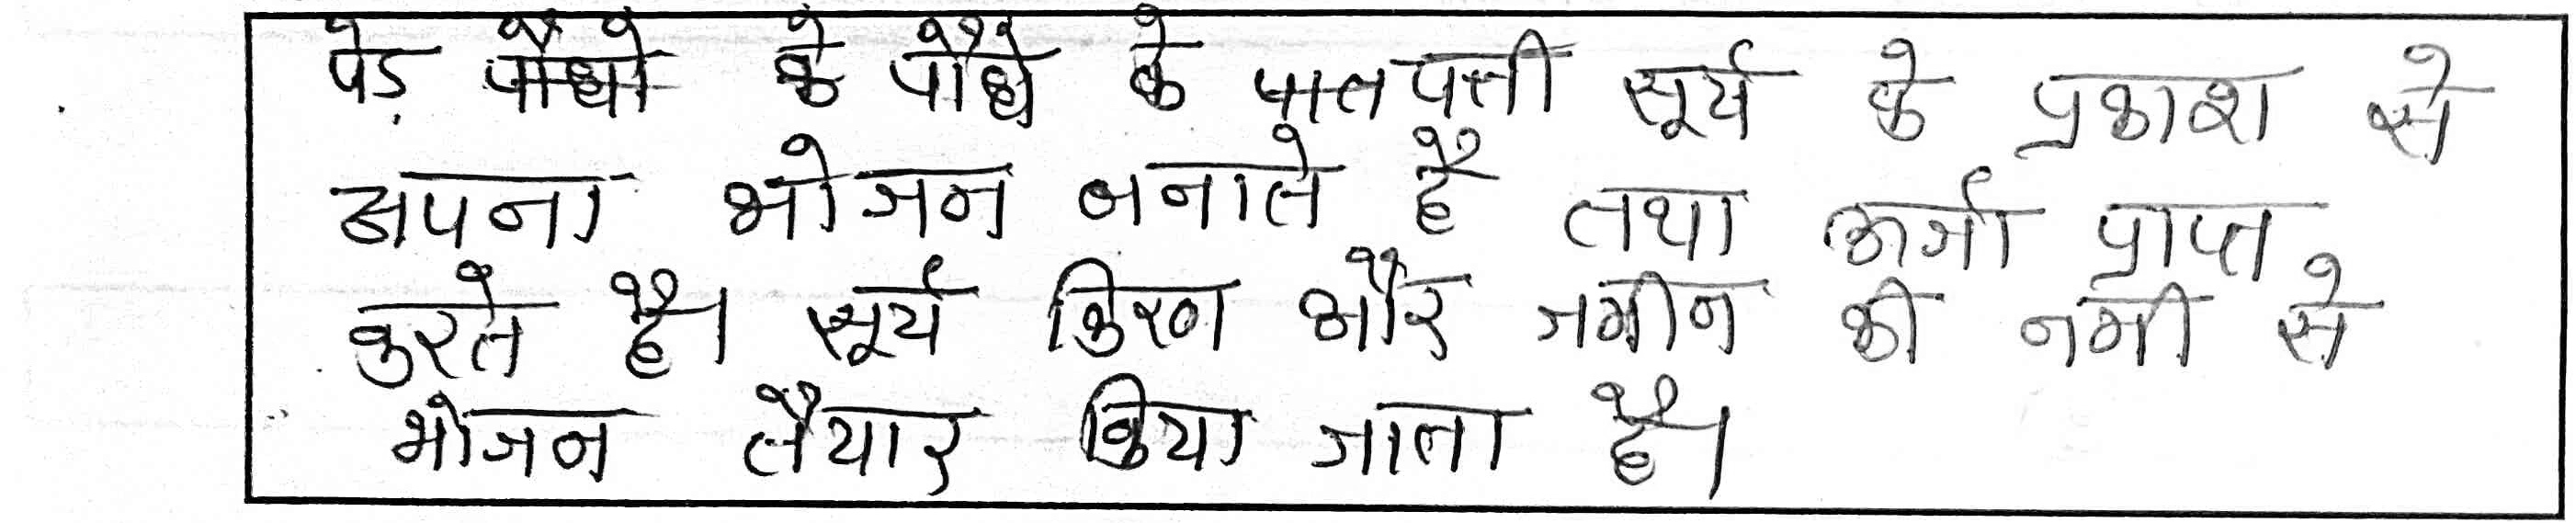 पेड़ पौधो के पौधे के पात पत्ती सूर्य के प्रकाश से
अपना भोजन बनाते है तथा ऊर्जा प्राप्त
करते है। सूर्य किरण और जमीन की नमी से
भोजन तैयार किया जाता है।